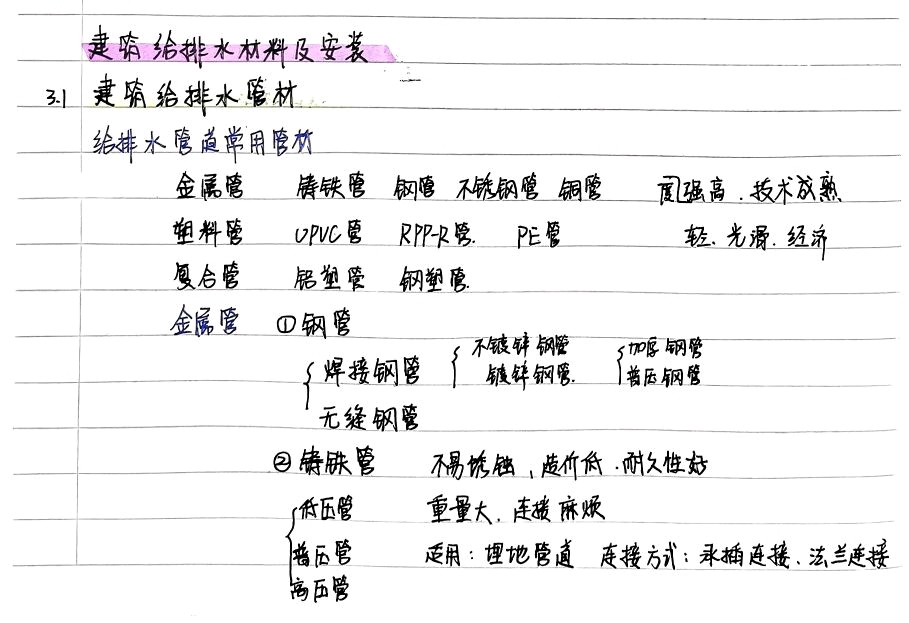 建筑给排水材料及安装
3.1 建筑给排水管材
给排水管道常用管材
金属管 铸铁管 钢管 不锈钢管 铜管 强高、技术成熟
塑料管 UPVC管 RPP-R管. PE管 轻、光滑、经济
复合管 铝塑管 钢塑管.
金属管 ①钢管
焊接钢管 不镀锌钢管 加厚钢管
镀锌钢管. 普压钢管
无缝钢管
②铸铁管 不易锈蚀、造价低、耐久性好
低压管 重量大、连接麻烦
普压管 适用:埋地管道 连接方式:承插连接、法兰连接
高压管